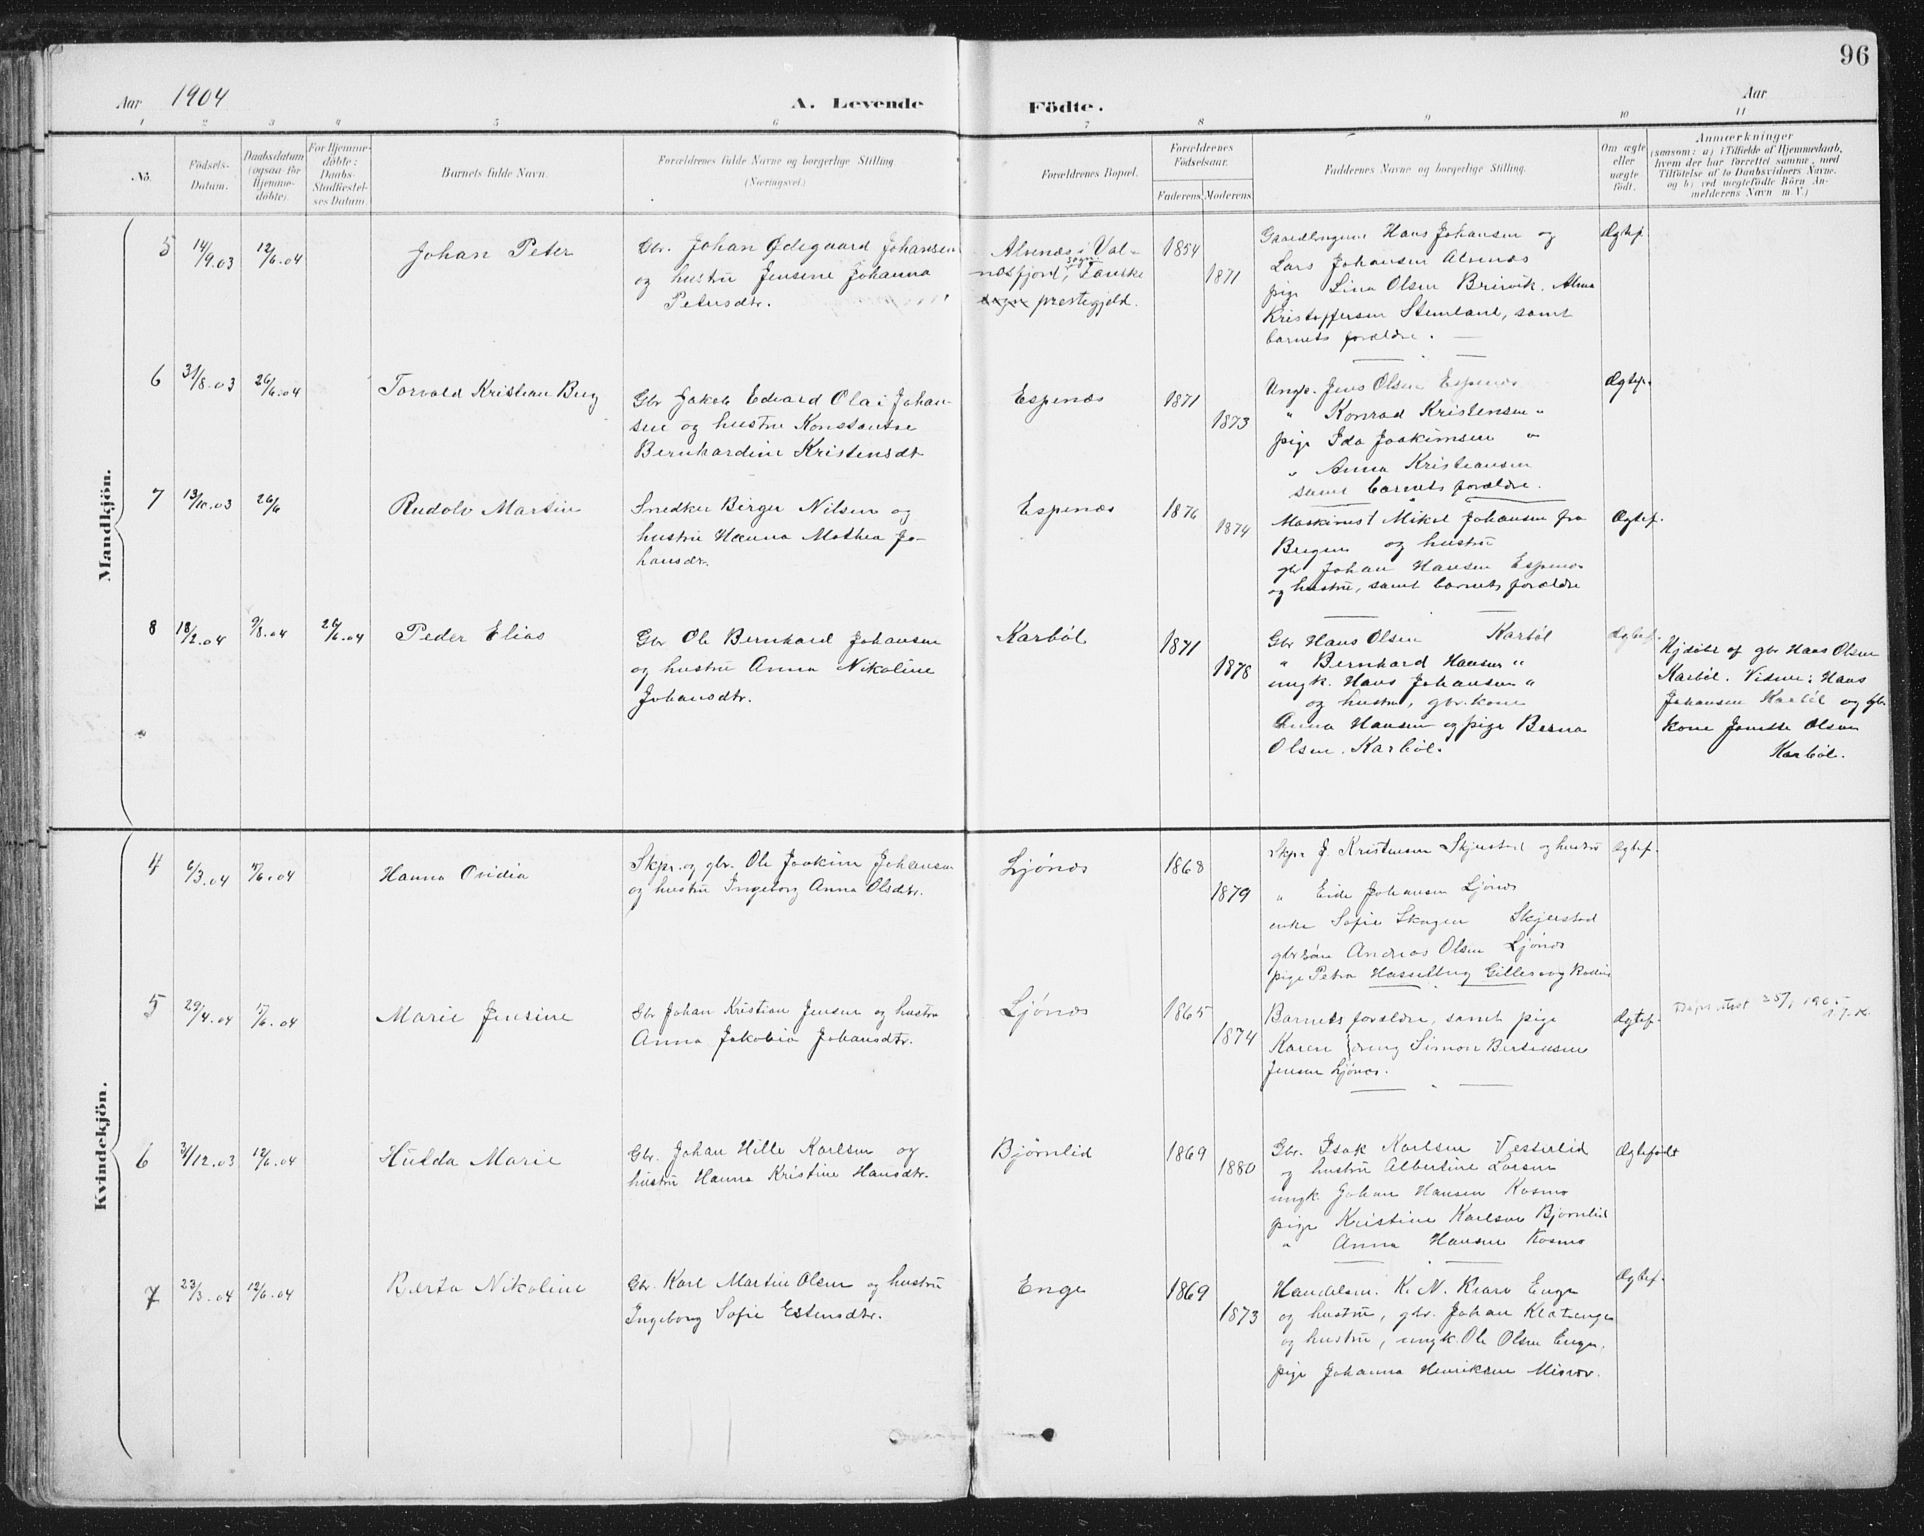 96
Aar 1904 A. Levende Födte. Aar
1 2 3 4 5 6 7 8 9 10 11
No.
Födsels-Datum.
Daabsdatum (ogsaa for Hjemmedöbte).
For Hjemmedöbte: Daabs-Stadfæstelses Datum.
Barnets fulde Navn.
Forældrenes fulde Navne og borgerlige Stilling (Næringsvei.)
Forældrenes Bopæl.
Forældrenes Födselsaar.
Faderens Moderens
Faddernes Navne og borgerlige Stilling.
Om ægte eller uægte födt.
Anmærkninger
(saasom: a) i Tilfælde af Hjemmedaab,
hvem der har forrettet samme, med
Tilföielse af to Daabsvidners Navne,
og b) ved uægtefödte Börn An-
melderens Navn m. V.)
Mandkjön.
5 14/9.03 12/6.04 Johan Peter
Gbr. Johan Ødegaard Johansen
og hustru Jensine Johanna
Petersdtr.
Alvenæs i Val-
næsfjord sogn, Fauske
sogn prestegjeld.
1854 1871
Gaardbrugerne Hans Johansen og
Lars Johansen Alvenæs
pige Lina Olsen Brervik. Alma
Kristoffersen Stemland, samt
barnets forældre.
Ægtef.
6 31/8.03 26/6.04 Torvald Kristian Berg
Gbr Jakob Edvard Olai Johan-
sen og hustru Konstanse
Bernhardine Kristensdt
Espenæs
1871 1873
Ungk. Jens Olsen Espenæs
" Konrad Kristensen "
pige Ida Joakimsen "
" Anna Kristiansen
samt barnets forældre.
Ægtef.
7 13/10.03 26/6 Rudolv Martin
Snedker Birger Nilsen og
hustru Hanna Mathea Jo-
hansdr.
Espenæs
1876 1874
Maskinist Mikal Johansen fra
Bergen og hustru
gbr Johan Hansen Espenæs
og hustru, samt barnets forældre
Ægtef.
8 18/2.04 9/8.04 26/6.04 Peder Elias
Gbr Ole Bernhard Johansen
og hustru Anna Nikoline
Johansdtr.
Karbøl
1871 1878
Gbr Hans Olsen Karbøl
" Bernhard Hansen "
ungk. Hans Johansen "
og hustru, gbr.kone
Anna Hansen og pige Berna
Olsen. Karbøl.
Ægtef.
Hjdøbt af gbr Hans Olsen
Karbøl. Vidner: Hans
Johansen Karbøl og gbr
kone Jonette Olsen
Karbøl.
Kvindekjön.
4 6/3.04 12/6.04 Hanna Ovidia
Skpr. og gbr. Ole Joakim Johansen
og hustru Ingeborg Anna Olsdtr.
Ljønæs
1868 1879
Skpr J. Kristensen Skjerstad og hustru
" Eide Johansen Ljønæs
enke Sofie Skagen Skjerstad
gbrsøn Andreas Olsen Ljønæs
pige Petra Hasselberg
Ægtef.
5 29/4.04 12/6.04 Marie Jensine
Gbr Johan Kristian Jensen og hustru
Anna Jakobia Johansdtr.
Ljønæs
1865 1874
Barnets forældre, samt pige
Karen / dreng Simon Bertensen
Jensen Ljønæs.
Ægtef.
25/1 1905
6 31/12.03 12/6.04 Hulda Marie
Gbr. Johan Hille Karlsen og
hustru Hanna Kristine Hansdtr.
Bjørnlid
1869 1880
Gbr. Isak Karlsen Vesterlid
og hustru Albertine Larsen
ungk. Johan Hansen Kosmo
pige Kristine Karlsen Bjørnlid
" Anna Hansen Kosmo
Ægtefødt
7 23/3.04 12/6.04 Berta Nikoline
Gbr. Karl Martin Olsen og hustru
Ingeborg Sofie Estensdtr.
Enge
1869 1873
Handelsm. K. N. Enge
og hustru, gbr. Johan
og hustru, ungk. Ole Olsen Enge,
pige Johanna Henriksen Misvær.
Ægtef.